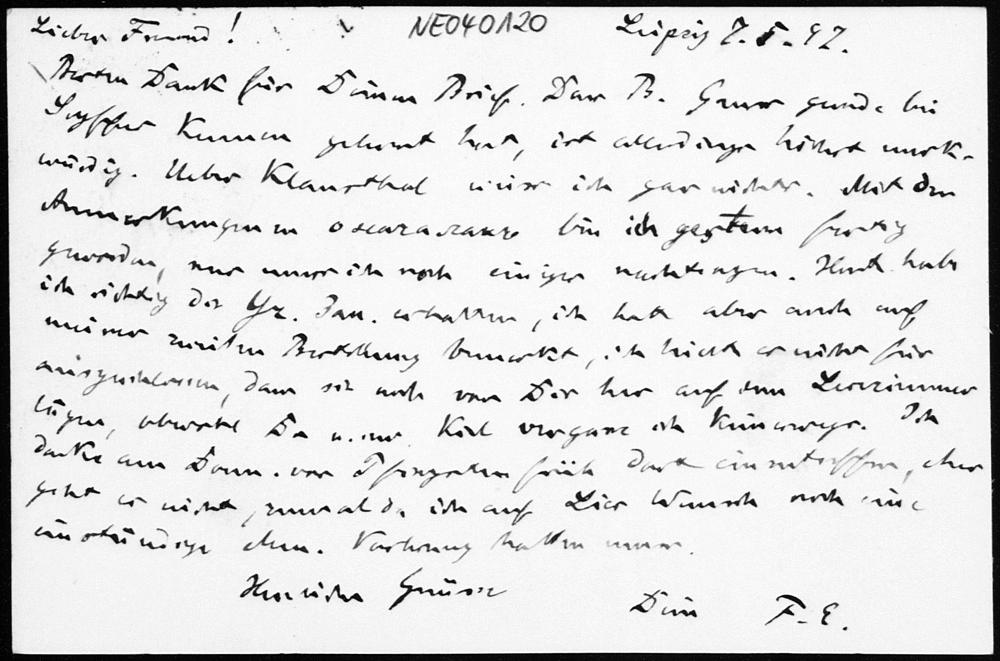 Lieber Freund! NE040120 Leipzig 7.5.97.
Besten Dank für Deinen Brief. Dass B. Grass gerade bei
Kummer gehört hat, ist allerdings höchst merk-
würdig. Ueber Klausthal weiss ich gar nichts. Mit den
Anmerkungen in bin ich gestern fertig
geworden, nur muss ich noch einiges nachtragen. habe
ich richtig der erhalten, ich hatte aber auch auf
meiner zweiten Bestellung bemerkt, ich hielte es nicht für
ausgeschlossen, dass sie noch von Dir her auf dem Lesezimmer
lägen, obwohl Du Kiel vergass ich keineswegs. Ich
denke am Donn. vor Pfingsten früh dort einzutreffen, eher
geht es nicht, zumal da ich auf Lies Wunsch noch eine
einstündige Vorlesung halten muss.
Herzliche Grüsse
Dein F. E.